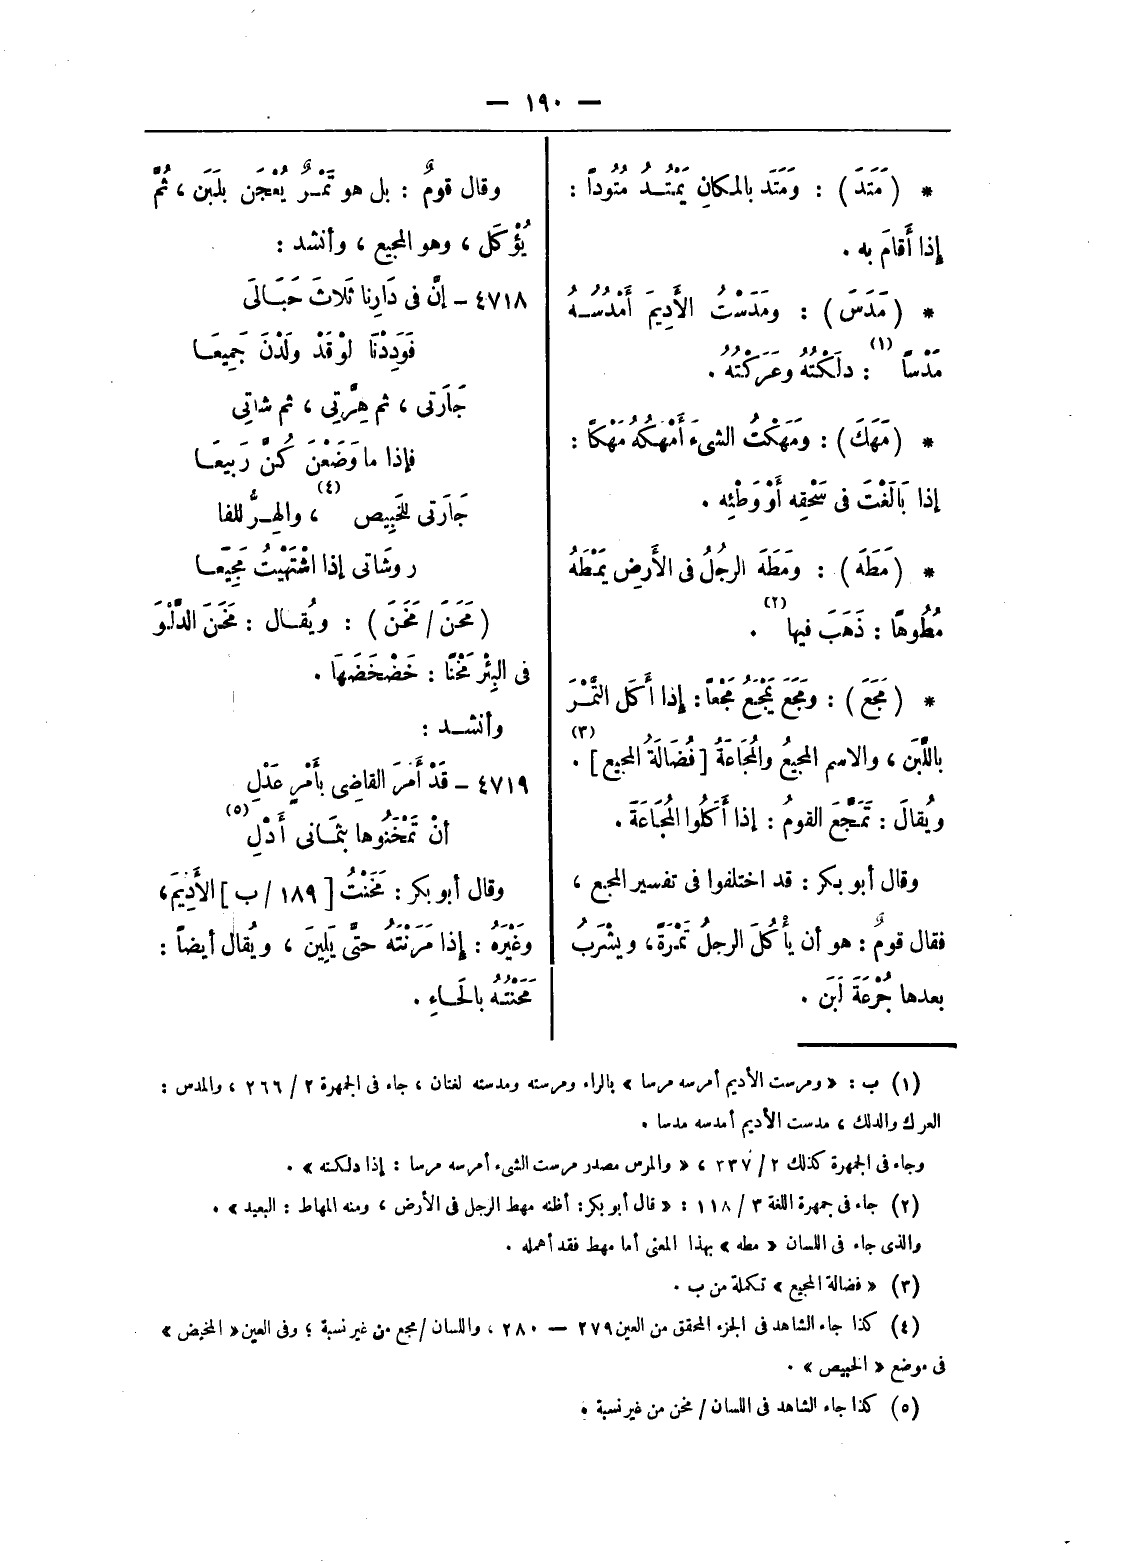 — ١٩٠ —
* (مَتَدَ) : وَمَتَد بالمكانِ يَمْتُدُ مُتُوداً :
إذا أَقامَ به .
* (مَدَسَ) : ومَدَسْتُ الأَدِيمَ أَمْدُسُـهُ
مَدْساً (١) : دلَكْتُهُ وعَرَكْتُه .
* (مَهَكَ) : ومَهَكْتُ الشىءَ أَمْهكُهُ مَهْكًا :
إذا بَالَغْتَ فى سَحْقِه أَوْ وَطْئِه .
* (مَطَهَ) : ومَطَهَ الرجُلُ فى الأَرضِ يمْطَهُ
مُطُوهًا : ذَهَبَ فيها (٢) .
* (مَجَعَ) : ومَجَعَ يَمْجَعُ مَجْعاً : إذا أَكَل التَّمْـرَ
باللَّبَن ، والاسم المجيعُ والمُجَاعَةُ [فُضَالَةُ المجيع] (٣) .
ويُقالَ : تَمَجَّعَ القومُ : إذا أَكَلُوا المُجَاعَةَ .
وقال أبو بكر : قد اختلفوا فى تفسير المجع ،
فقال قومٌ : هو أن يأْكُلَ الرجلُ تَمْرَةً ، ويشْرَبُ
بعدها جُرْعَةَ لَبَن .
وقال قومٌ : بل هو تَمْـرٌ يُعْجَن بلَبَن ، ثُمَّ
يُؤْكَل ، وهو المجيع ، وأنشد :
٤٧١٨ ــ إنَّ فى دَارِنا ثَلاثَ حَبَـالَى
فَوَدِدْنَا لوْ قَدْ ولَدْنَ جَمِيعَـا
جَارَتى ، ثم هِرَّتِي ، ثم شاتِي
فإذا ما وَضَعْنَ كُنَّ رَبيعَـا
جَارَتى للخَبِيصِ (٤) ، والهِـرُّ للفا
ر وشَاتى إذا اشْتَهَيْتُ مَجِيّعَـا
(مَحَنَ / مَخَنَ) : ويُقـال : مَخَنَ الدَّلْوَ
فى البِئْر مَخْنًا : خَضْخَضَهَا .
وأنشـد :
٤٧١٩ ــ قَدْ أَمَرَ القاضِى بأَمْرٍ عَدْلِ
أنْ تَمْخَنُوها بثمَـانى أَدْلِ (٥)
وقال أبو بكر : مَخَنْتُ [١٨٩ / ب] الأَدِيمَ ،
وغَيْرَهُ : إذا مَرَنْتَهُ حتَّى يَلِينَ ، ويُقال أيضاً :
مَحَنْتُـهُ بالحَـاءِ .
(١) ب : « ومرست الأديم أمرسه مرسا » بالراء ومرسته ومدسته لغتان ، جاء فى الجمهرة ٢ / ٢٦٦ ، والمدس :
العرك والدلك ، مدست الأديم أمدسه مدسا .
وجاء فى الجمهرة كذلك ٢ / ٣٣٧ ، « والمرس مصدر مرست الشىء أمرسه مرسا : إذا دلكته » .
(٢) جاء فى جمهرة اللغة ٣ / ١١٨ : « قال أبو بكر : أظنه مهط الرجل فى الأرض ، ومنه المهاط : البعيد » .
والذى جاء فى اللسان « مطه » بهذا المعنى أما مهط فقد أهمله .
(٣) « فضالة المجيع » تكملة من ب .
(٤) كذا جاء الشاهد فى الجزء المحقق من العين ٢٧٩ — ٢٨٠ ، واللسان / مجع من غير نسبة ؛ وفى العين « المخيض »
فى موضع « الخبيص » .
(٥) كذا جاء الشاهد فى اللسان / مخن من غير نسبة .